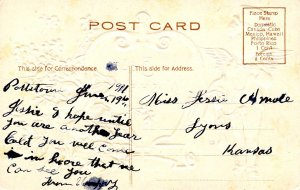 POST CARD
Place Stamp
Here
Domestic
Canada-Cuba
Mexico, Hawaii
Philippines
Porto Rico
1 Cent
Foreign
2 Cents
This side for Correspondence.
This side for Address.
1911
Jessie I hope until
You are another year
Old You will come
in hoore that we
Can see you
from
Miss Jessie Amole
Lyons
Kansas